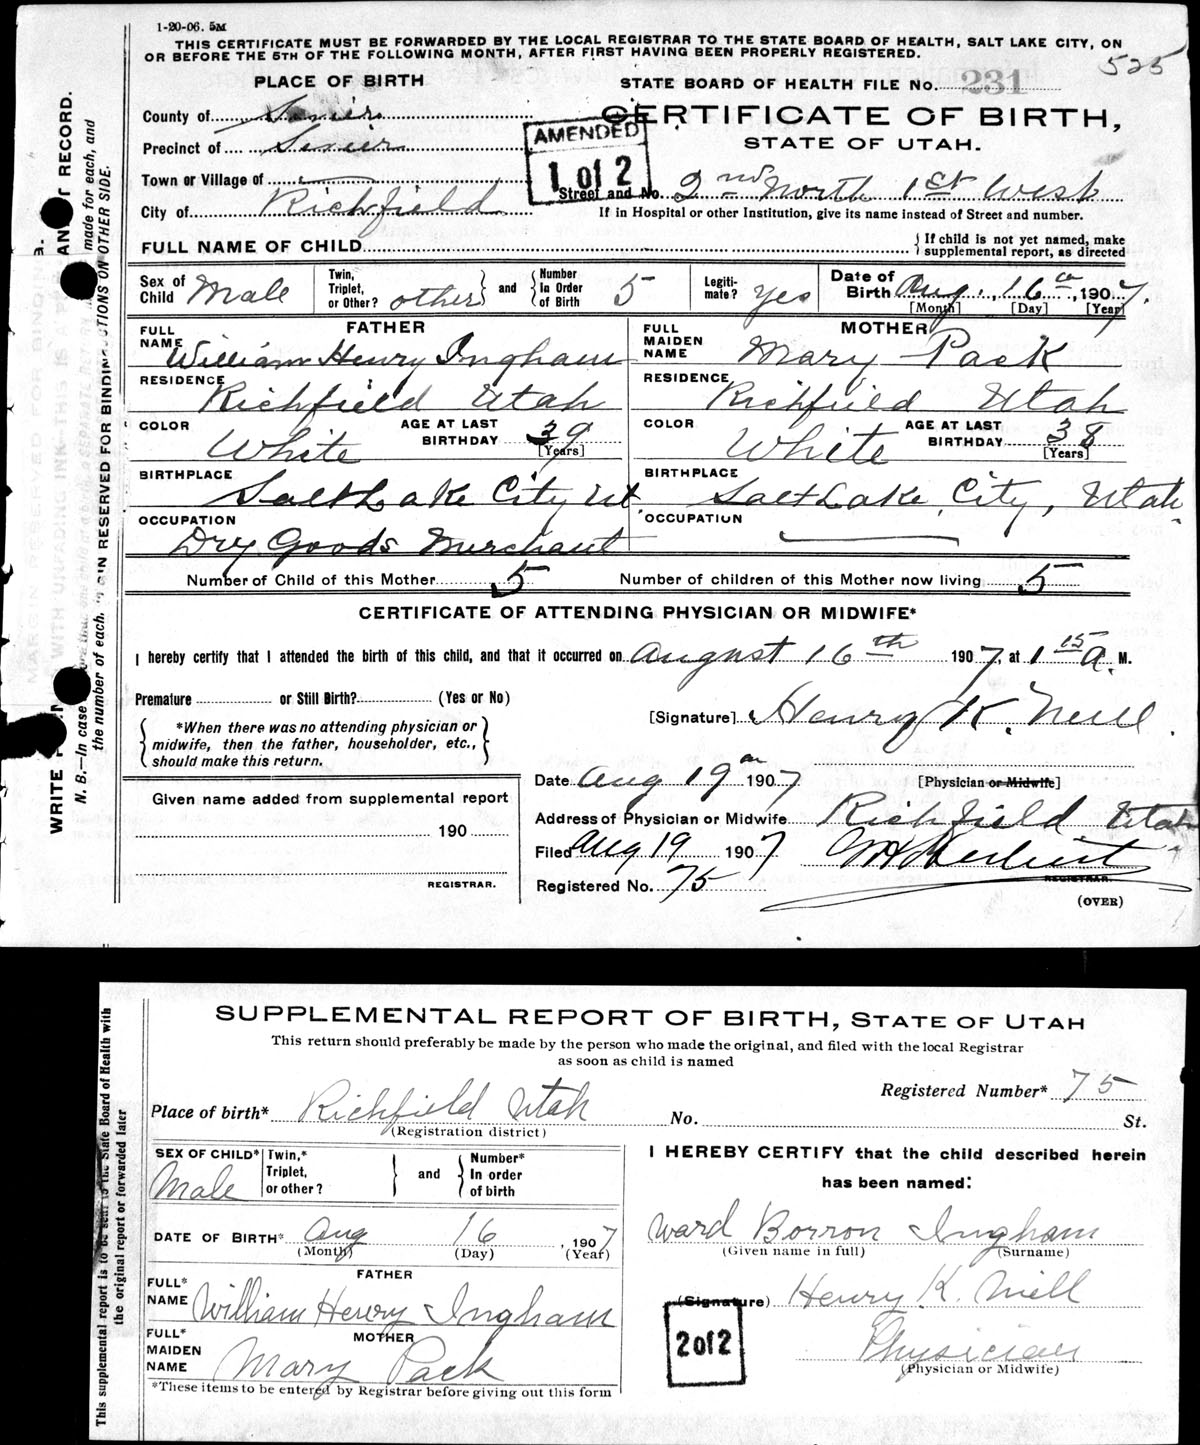 1-20-06. 5M
THIS CERTIFICATE MUST BE FORWARDED BY THE LOCAL REGISTRAR TO THE STATE BOARD OF HEALTH, SALT LAKE CITY, ON
OR BEFORE THE 5TH OF THE FOLLOWING MONTH, AFTER FIRST HAVING BEEN PROPERLY REGISTERED.
525
PLACE OF BIRTH
STATE BOARD OF HEALTH FILE No. 231
County of Sevier
CERTIFICATE OF BIRTH,
STATE OF UTAH.
AMENDED
1 of 2
Precinct of Sevier
Town or Village of
Street and No. 2nd North 1st West
City of Richfield
If in Hospital or other Institution, give its name instead of Street and number.
FULL NAME OF CHILD
{ If child is not yet named, make
supplemental report, as directed
Sex of Child Male
Twin, Triplet, or Other? other } and { Number In Order of Birth 5
Legiti-mate? yes
Date of Birth Aug. 16th, 1907.
[Month] [Day] [Year]
FATHER
FULL NAME William Henry Ingham
RESIDENCE Richfield Utah
COLOR White
AGE AT LAST BIRTHDAY 39
[Years]
BIRTHPLACE Salt Lake City Ut.
OCCUPATION Dry Goods Merchant
MOTHER
FULL MAIDEN NAME Mary Pack
RESIDENCE Richfield Utah
COLOR White
AGE AT LAST BIRTHDAY 38
[Years]
BIRTHPLACE Salt Lake City, Utah.
OCCUPATION
Number of Child of this Mother 5 Number of children of this Mother now living 5
CERTIFICATE OF ATTENDING PHYSICIAN OR MIDWIFE*
I hereby certify that I attended the birth of this child, and that it occurred on August 16th 1907, at 1 15 A. M.
Premature or Still Birth? (Yes or No)
{ *When there was no attending physician or
midwife, then the father, householder, etc.,
should make this return. }
[Signature] Henry K. Neill
[Physician or Midwife]
Date Aug 19th 1907
Address of Physician or Midwife Richfield Utah
Filed Aug 19 1907
REGISTRAR.
Registered No. 75
(OVER)
Given name added from supplemental report
190
REGISTRAR.
N. B.—In case
the number of each,
made for each, and
ON OTHER SIDE.
SUPPLEMENTAL REPORT OF BIRTH, STATE OF UTAH
This return should preferably be made by the person who made the original, and filed with the local Registrar
as soon as child is named
Registered Number* 75
Place of birth* Richfield Utah No. St.
(Registration district)
SEX OF CHILD* Male
Twin,* Triplet, or other? } and { Number* In order of birth
DATE OF BIRTH* Aug 16, 1907
(Month) (Day) (Year)
FATHER
FULL* NAME William Henry Ingham
MOTHER
FULL* MAIDEN NAME Mary Pack
*These items to be entered by Registrar before giving out this form
I HEREBY CERTIFY that the child described herein
has been named:
Ward Borron Ingham
(Given name in full) (Surname)
(Signature) Henry K. Neill
Physician
(Physician or Midwife)
2 of 2
This supplemental report is to be sent to the State Board of Health with
the original report or forwarded later